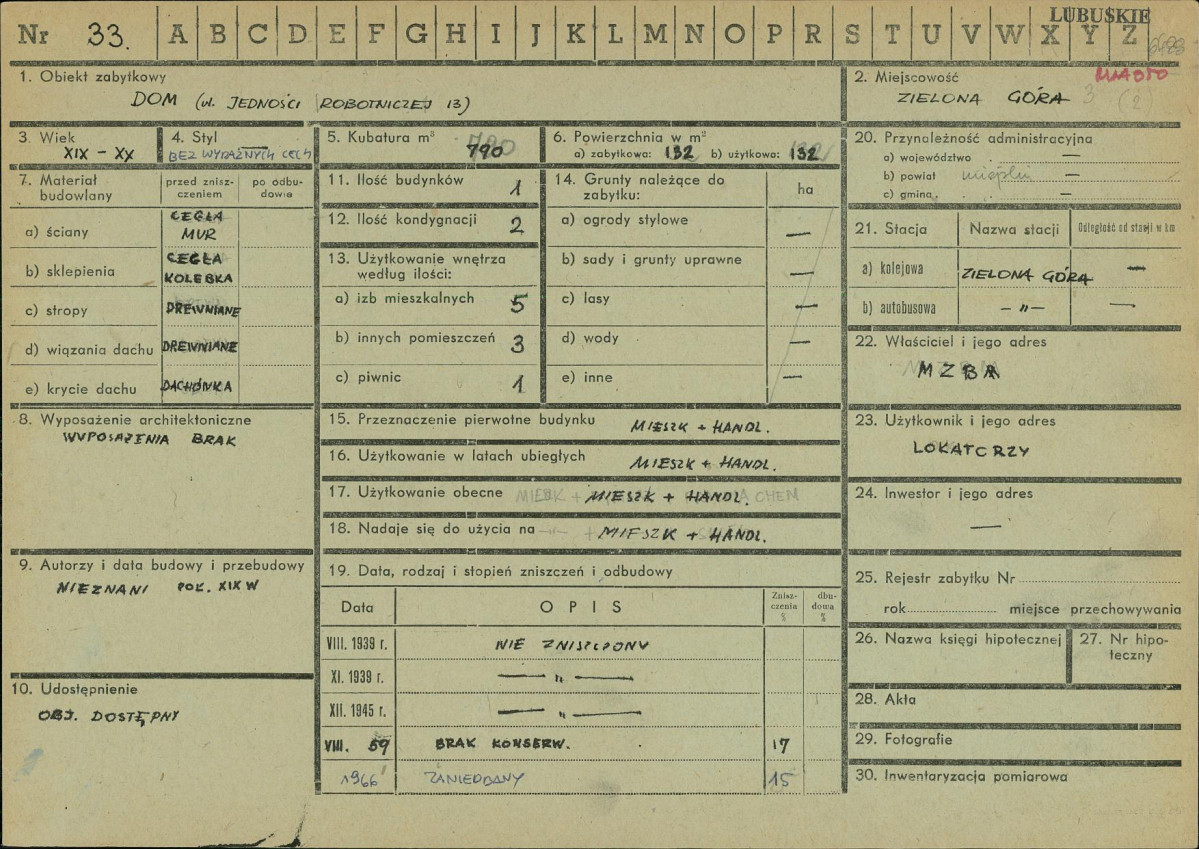 LUBUSKIE
Nr 33. A B C D E F G H I J K L M N O P R S T U V W X Y Z
1. Obiekt zabytkowy
DOM (ul. JEDNOŚCI ROBOTNICZEJ 13)
2. Miejscowość MIASTO
ZIELONA GÓRA 3 (2)
3. Wiek
XIX - XX
4. Styl —
BEZ WYRAŹNYCH CECH
5. Kubatura m³
790
6. Powierzchnia w m²
a) zabytkowa: 132 b) użytkowa: 132
20. Przynależność administracyjna
a) województwo —
b) powiat miejski —
c) gmina —
7. Materiał budowlany
przed zniszczeniem
po odbudowie
a) ściany CEGŁA MUR
b) sklepienia CEGŁA KOLEBKA
c) stropy DREWNIANE
d) wiązania dachu DREWNIANE
e) krycie dachu DACHÓWKA
11. Ilość budynków 1
12. Ilość kondygnacji 2
13. Użytkowanie wnętrza
według ilości:
a) izb mieszkalnych 5
b) innych pomieszczeń 3
c) piwnic 1
14. Grunty należące do
zabytku: ha
a) ogrody stylowe —
b) sady i grunty uprawne —
c) lasy —
d) wody —
e) inne —
21. Stacja Nazwa stacji Odległość od stacji w km
a) kolejowa ZIELONA GÓRA —
b) autobusowa — „ — —
22. Właściciel i jego adres
MZBM
8. Wyposażenie architektoniczne
WYPOSAŻENIA BRAK
15. Przeznaczenie pierwotne budynku MIESZK + HANDL.
16. Użytkowanie w latach ubiegłych MIESZK + HANDL.
17. Użytkowanie obecne MIESZK + HANDL.
18. Nadaje się do użycia na MIESZK + HANDL.
23. Użytkownik i jego adres
LOKATORZY
24. Inwestor i jego adres
—
9. Autorzy i data budowy i przebudowy
NIEZNANI POŁ. XIX W
19. Data, rodzaj i stopień zniszczeń i odbudowy
Data OPIS Zniszczenia % dbudowa %
VIII. 1939 r. NIE ZNISZCZONY
XI. 1939 r. — „ —
XII. 1945 r. — „ —
VIII. 59 BRAK KONSERW. 17
1966 ZANIEDBANY 15
10. Udostępnienie
OBJ. DOSTĘPNY
25. Rejestr zabytku Nr
rok miejsce przechowywania
26. Nazwa księgi hipotecznej
27. Nr hipoteczny
28. Akta
29. Fotografie
30. Inwentaryzacja pomiarowa